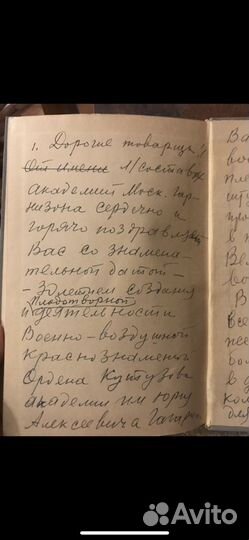 1. Дорогие товарищи!
От имени л/состава
академий Моск. гар-
низона сердечно и
горячо поздравляем
Вас со знамена-
тельной датой -
- 30летием создания
плодотворной
и деятельности
Военно-воздушной
Краснознаменной
Ордена Кутузова
академии им Юрия
Алексеевича Гагарина
Ва
во
пле
Ве
во
В
все
в
ко
Avito